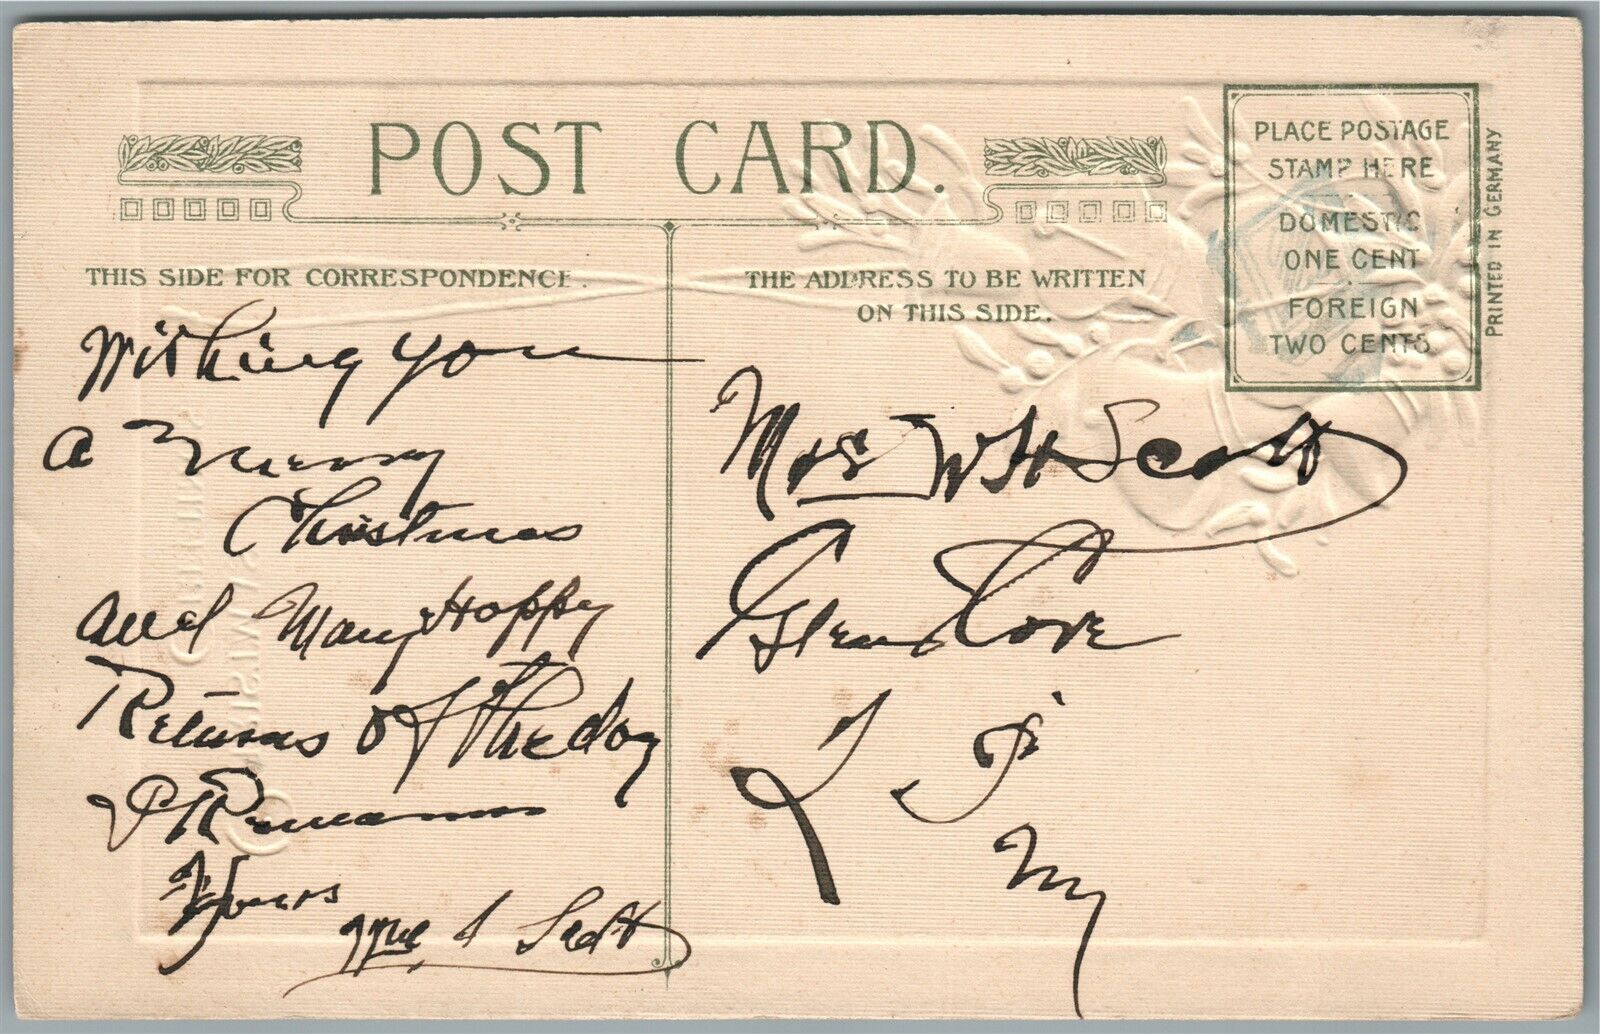 POST CARD.
THIS SIDE FOR CORRESPONDENCE.
THE ADDRESS TO BE WRITTEN
ON THIS SIDE.
PLACE POSTAGE
STAMP HERE
DOMESTIC
ONE CENT
FOREIGN
TWO CENTS
PRINTED IN GERMANY
Wishing you
a Merry
Christmas
and Many Happy
Returns of the day
I Remain
Yours
Wm Scott
Mrs W H Scott
Glen Cove
L I
NY